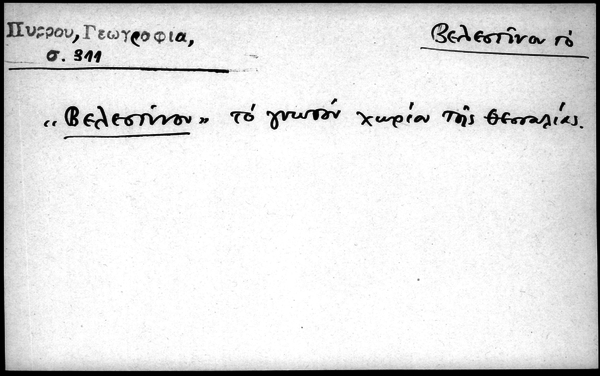 Πύρρου, Γεωγραφια,
σ. 311
Βελεστῖνον τό
„Βελεστῖνον" τό γνωστόν χωρίον τῆς Θεσσαλίας.